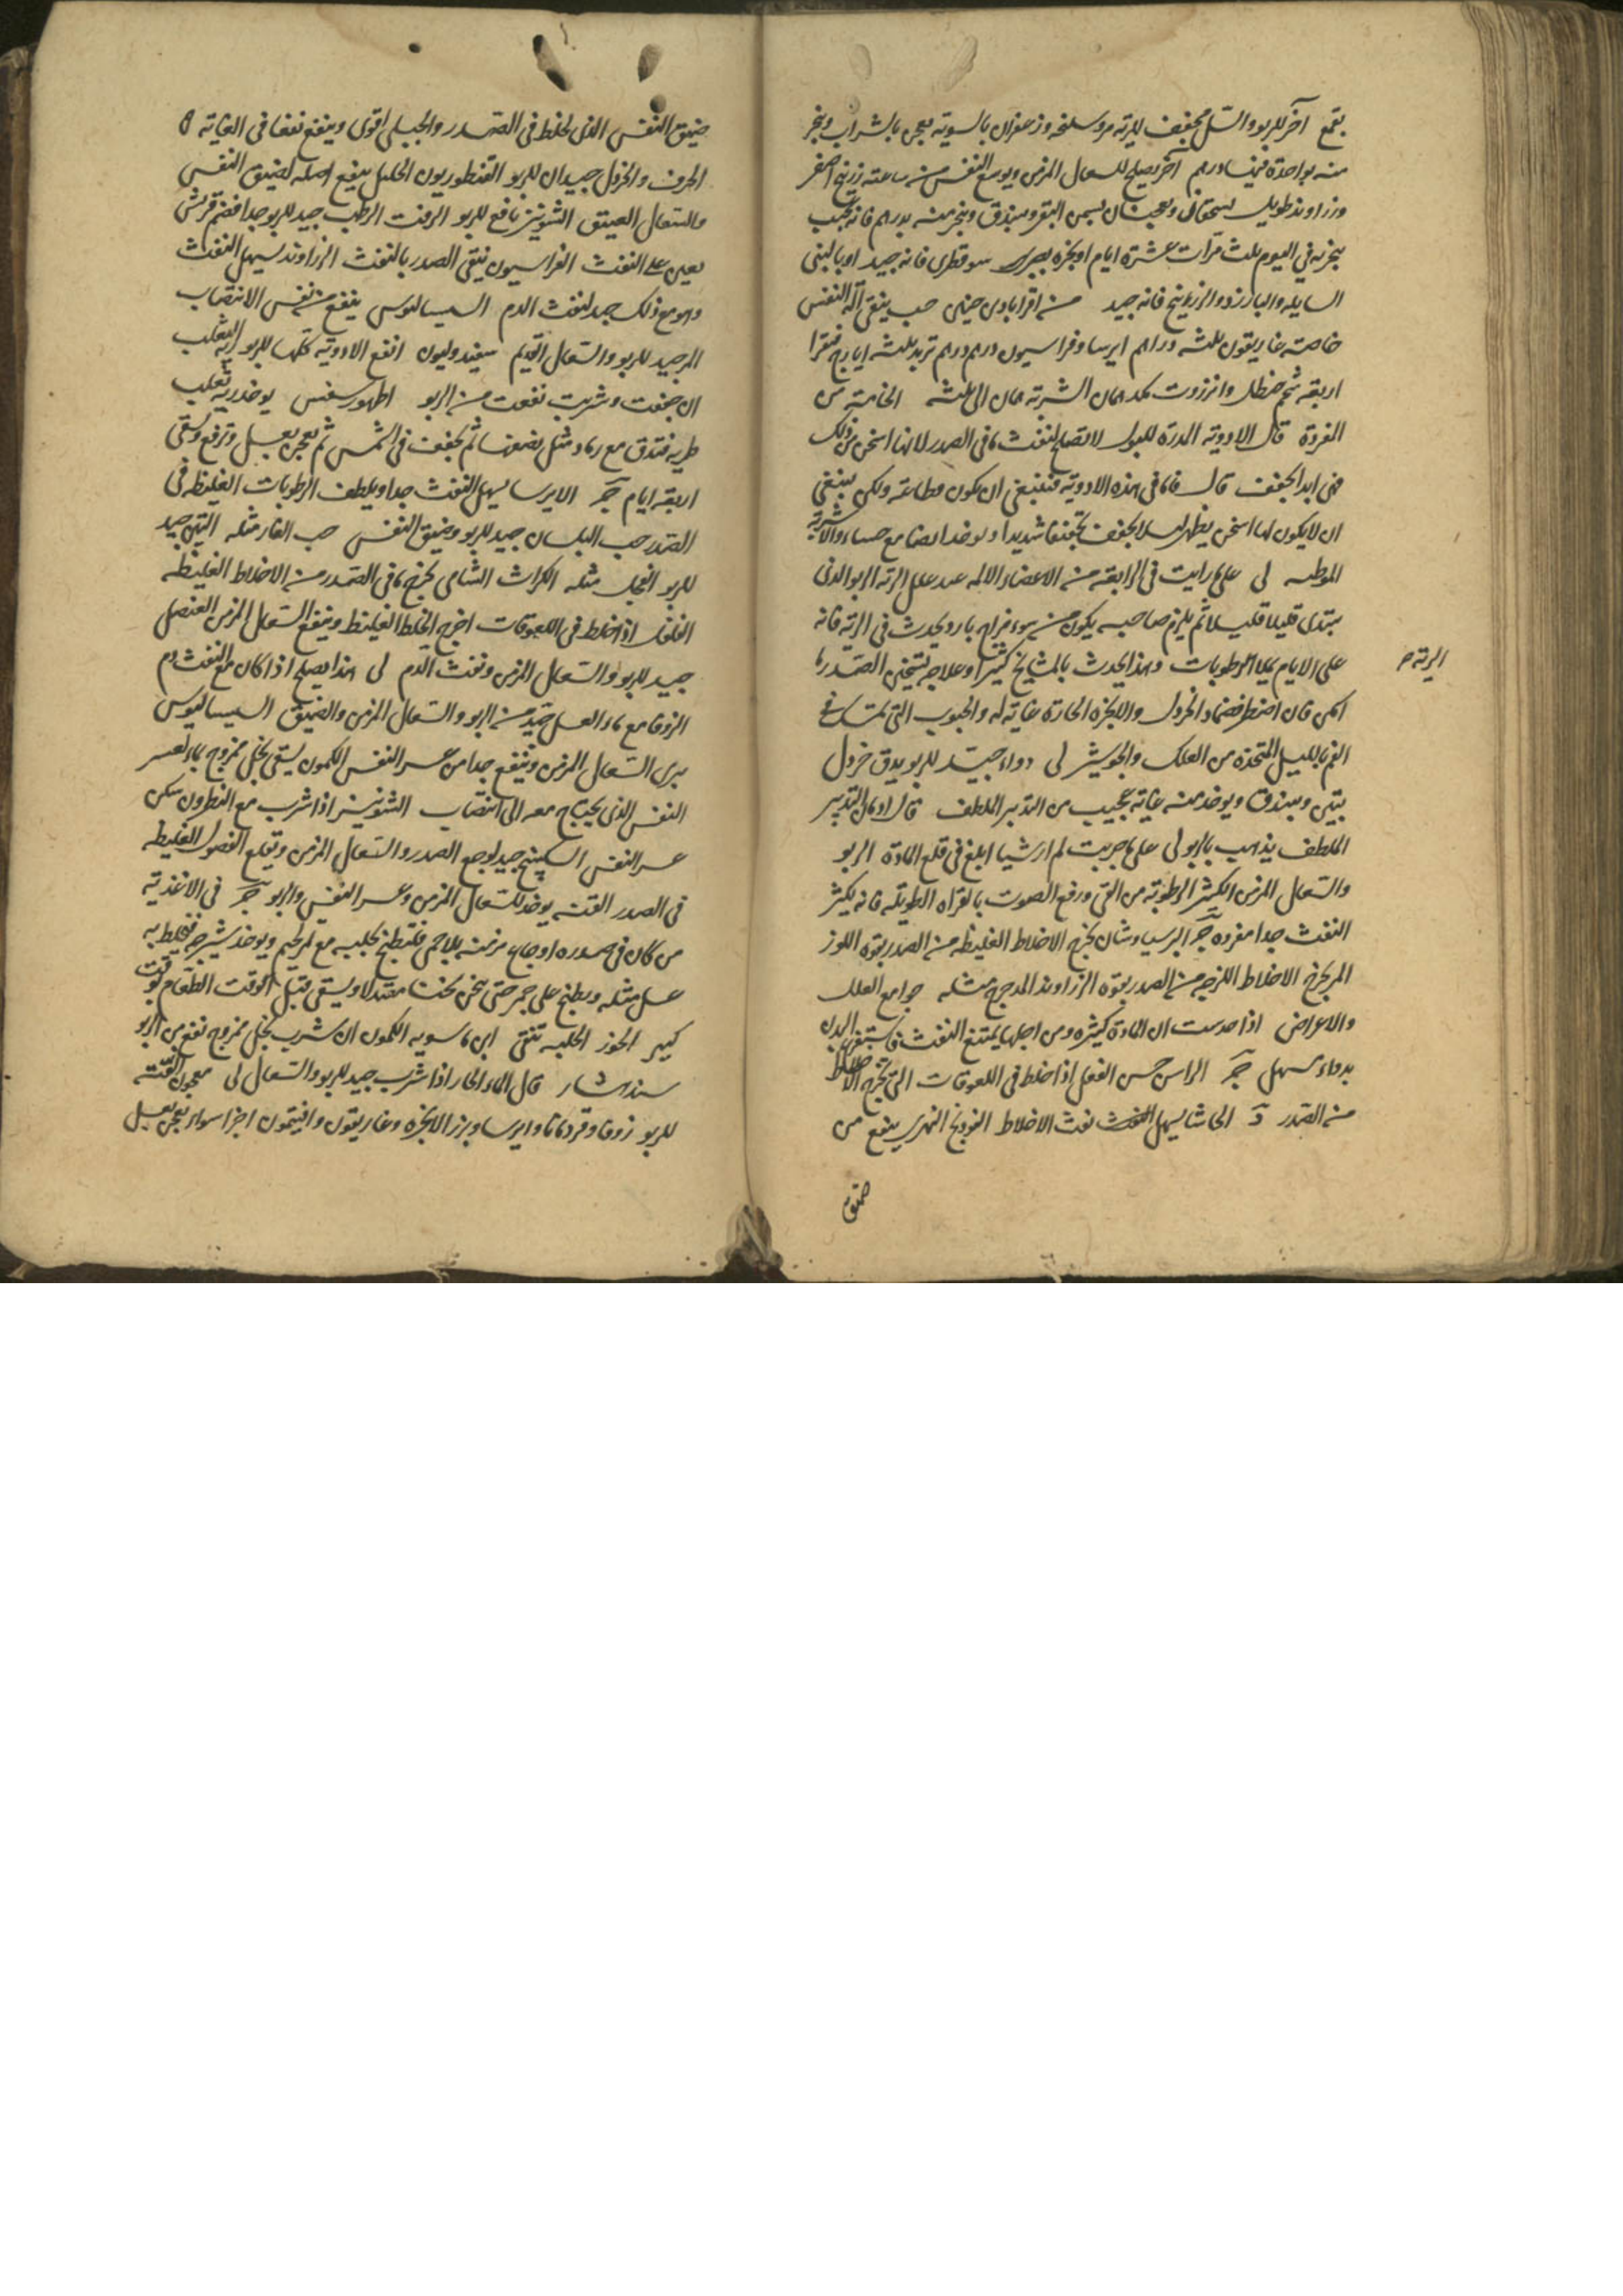 بقمع آخر للربو والسل مجفف للرية مر وسليخه وزعفران بالسوية يعجن بالشراب ويبخر
منه بواحدة فيها درهم آخر يصلح للسعال المزمن ويوسع النفس من ساعته زرنيخ اصفر
وزراوند طويل يسحقان ويعجنان بسمن البقر ويبندق ويبخر منه بدرهم فانه عجيب
يبخر به في اليوم ثلث مرات عشرة ايام او بخره بصبر سوقطرى فانه جيد او باللبنى
السايله والبارزد والزرنيخ فانه جيد من اقرابادين حنين حب ينقى آلة النفس
خاصته غاريقون ثلثه دراهم ايرسا وفراسيون درهم درهم تربد ثلثه ايارج فيقرا
اربعة شحم حنظل وانزروت الشربة الى ثلثه الخامسة من
المفردة قال الادوية المدرة للبول لا تصلح لنفث ما فى الصدر لانها اسخن من ذلك
فهى ابدا تجفف قال فاما فى هذه الادوية فينبغى ان تكون قطاعة ولكن ينبغى
ان لا يكون لها اسخن يظهر ليلا يجفف تجفيفا شديدا و توخذ ايضا مع حساء والاشربة
المرطبه لى على ما رايت فى الرابعة من الاعضاء الالمه عند علل الرية الربو الذى
يبتدى قليلا قليلا ثم يلزم صاحبه يكون من سوء مزاج بارد يحدث فى الرية فانه
على الايام يملا الرطوبات وهذا يحدث بالمشايخ كثيرا وعلاجه تسخين الصدر ما
الرية م
امكن فان اضطر فضماد الخردل والابخره الحارة غاية له والحبوب التى تمسك فى
الفم بالليل المتخذة من العلك والجوشير لى دواء جيد للربو يدق خردل
بتين ويبندق ويوخذ منه غاية عجيب من التدبير الملطف قال ادمان التدبير
الملطف يذهب بالربو لى على ما جربت لم ار شيا ابلغ فى قلع المادة الربو
والسعال المزمن الكثير الرطوبة من القى ورفع الصوت بالقراه الطويله فانه يكثر
النفث جدا مفرده ج البرسياوشان يخرج الاخلاط الغليظه من الصدر بقوة اللوز
المر يخرج الاخلاط اللزجه من الصدر بقوة الزراوند المدحرج مثله جوامع العلل
والاعراض اذا حدست ان المادة كثيره ومن اجلها يمتنع النفث فاستفرغ البدن
بدواء مسهل ج الراسن حسن الفعل اذا خلط فى اللعوقات التى تخرج الاخلاط
من الصدر د الحاشا يسهل نفث الاخلاط الفوذنج النهرى ينفع من
ضيق
ضيق النفس الذى لخلط فى الصدر والجبلى اقوى وينفع نفعا فى الغاية
الحرف والخردل جيدان للربو القنطوريون الجليل ينفع اصله لضيق النفس
والسعال العتيق الشونيز نافع للربو الزفت الرطب جيد للربو جدا
يعين على النفث الفراسيون ينقى الصدر بالنفث الزراوند يسهل النفث
وهو مع ذلك جيد لنفث الدم السيساليوس ينفع من نفس الانتصاب
المر جيد للربو والسعال القديم سفندوليون انفع الادوية كلها للربو ريه الثعلب
ان جففت وشربت نفعت من الربو يوخذ ريه ثعلب
طريه فتدق مع رماد مثل نصفها ثم تجفف فى الشمس ثم يعجن بعسل وترفع وتسقى
اربعة ايام ج الايرسا يسهل النفث جدا ويلطف الرطوبات الغليظه فى
الصدر حب البلسان جيد للربو وضيق النفس حب الغار مثله التين جيد
للربو الفجل مثله الكراث الشامى يخرج ما فى الصدر من الاخلاط الغليظه
الفلفل اذا خلط فى اللعوقات اخرج الخلط الغليظ وينفع السعال المزمن العنصل
جيد للربو والسعال المزمن ونفث الدم لى هذا يصلح اذا كان مع النفث دم
الزوفا مع ماء العسل جيد من الربو والسعال المزمن والضيق السيساليوس
يبرى السعال المزمن وينفع جدا من عسر النفس الكمون يسقى بخل ممزوج بماء لعسر
النفس الذى يحتاج معه الى انتصاب الشونيز اذا شرب مع النطرون سكن
عسر النفس السكبينج جيد لوجع الصدر والسعال المزمن ويقلع الفضول الغليظه
فى الصدر القنه يوخذ للسعال المزمن وعسر النفس والربو ج فى الاغذية
من كان فى صدره اوجاع مزمنه بلا حمى فلتطبخ حلبه مع تمر لحيم ويوخذ شيرجه فيخلط به
عسل مثله ويطبخ على جمر حتى يثخن ثخنا معتدلا ويسقى قبل الوقت الطعام بوقت
كبير الخوز الحلبه تنقى ابن ماسويه الكمون ان شرب بخل ممزوج نفع من الربو
سندهشار قال الماء الحار اذا شرب جيد للربو والسعال لى معجون القنه
للربو زوفا وقردمانا وايرسا وبزر الانجره وغاريقون وافتيمون اجزا سواء يعجن بعسل